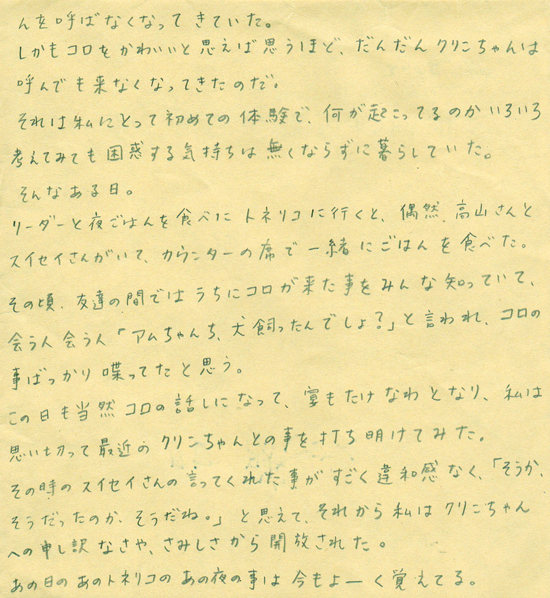 んを呼ばなくなってきていた。
しかもコロをかわいいと思えば思うほど、だんだんクリンちゃんは
呼んでも来なくなってきたのだ。
それは私にとって初めての体験で、何が起こってるのかいろいろ
考えてみても困惑する気持ちは無くならずに暮らしていた。
そんなある日。
リーダーと夜ごはんを食べにトネリコに行くと、偶然、高山さんと
スイセイさんがいて、カウンターの席で一緒にごはんを食べた。
その頃、友達の間ではうちにコロが来た事をみんな知っていて、
会う人会う人「アムちゃんち、犬飼ったんでしょ?」と言われ、コロの
事ばっかり喋ってたと思う。
この日も当然コロの話しになって、宴もたけなわとなり、私は
思い切って最近のクリンちゃんとの事を打ち明けてみた。
その時のスイセイさんの言ってくれた事がすごく違和感なく、「そうか、
そうだったのか、そうだね。」と思えて、それから私はクリンちゃん
への申し訳なさや、さみしさから開放された。
あの日のあのトネリコのあの夜の事は今もよーく覚えてる。